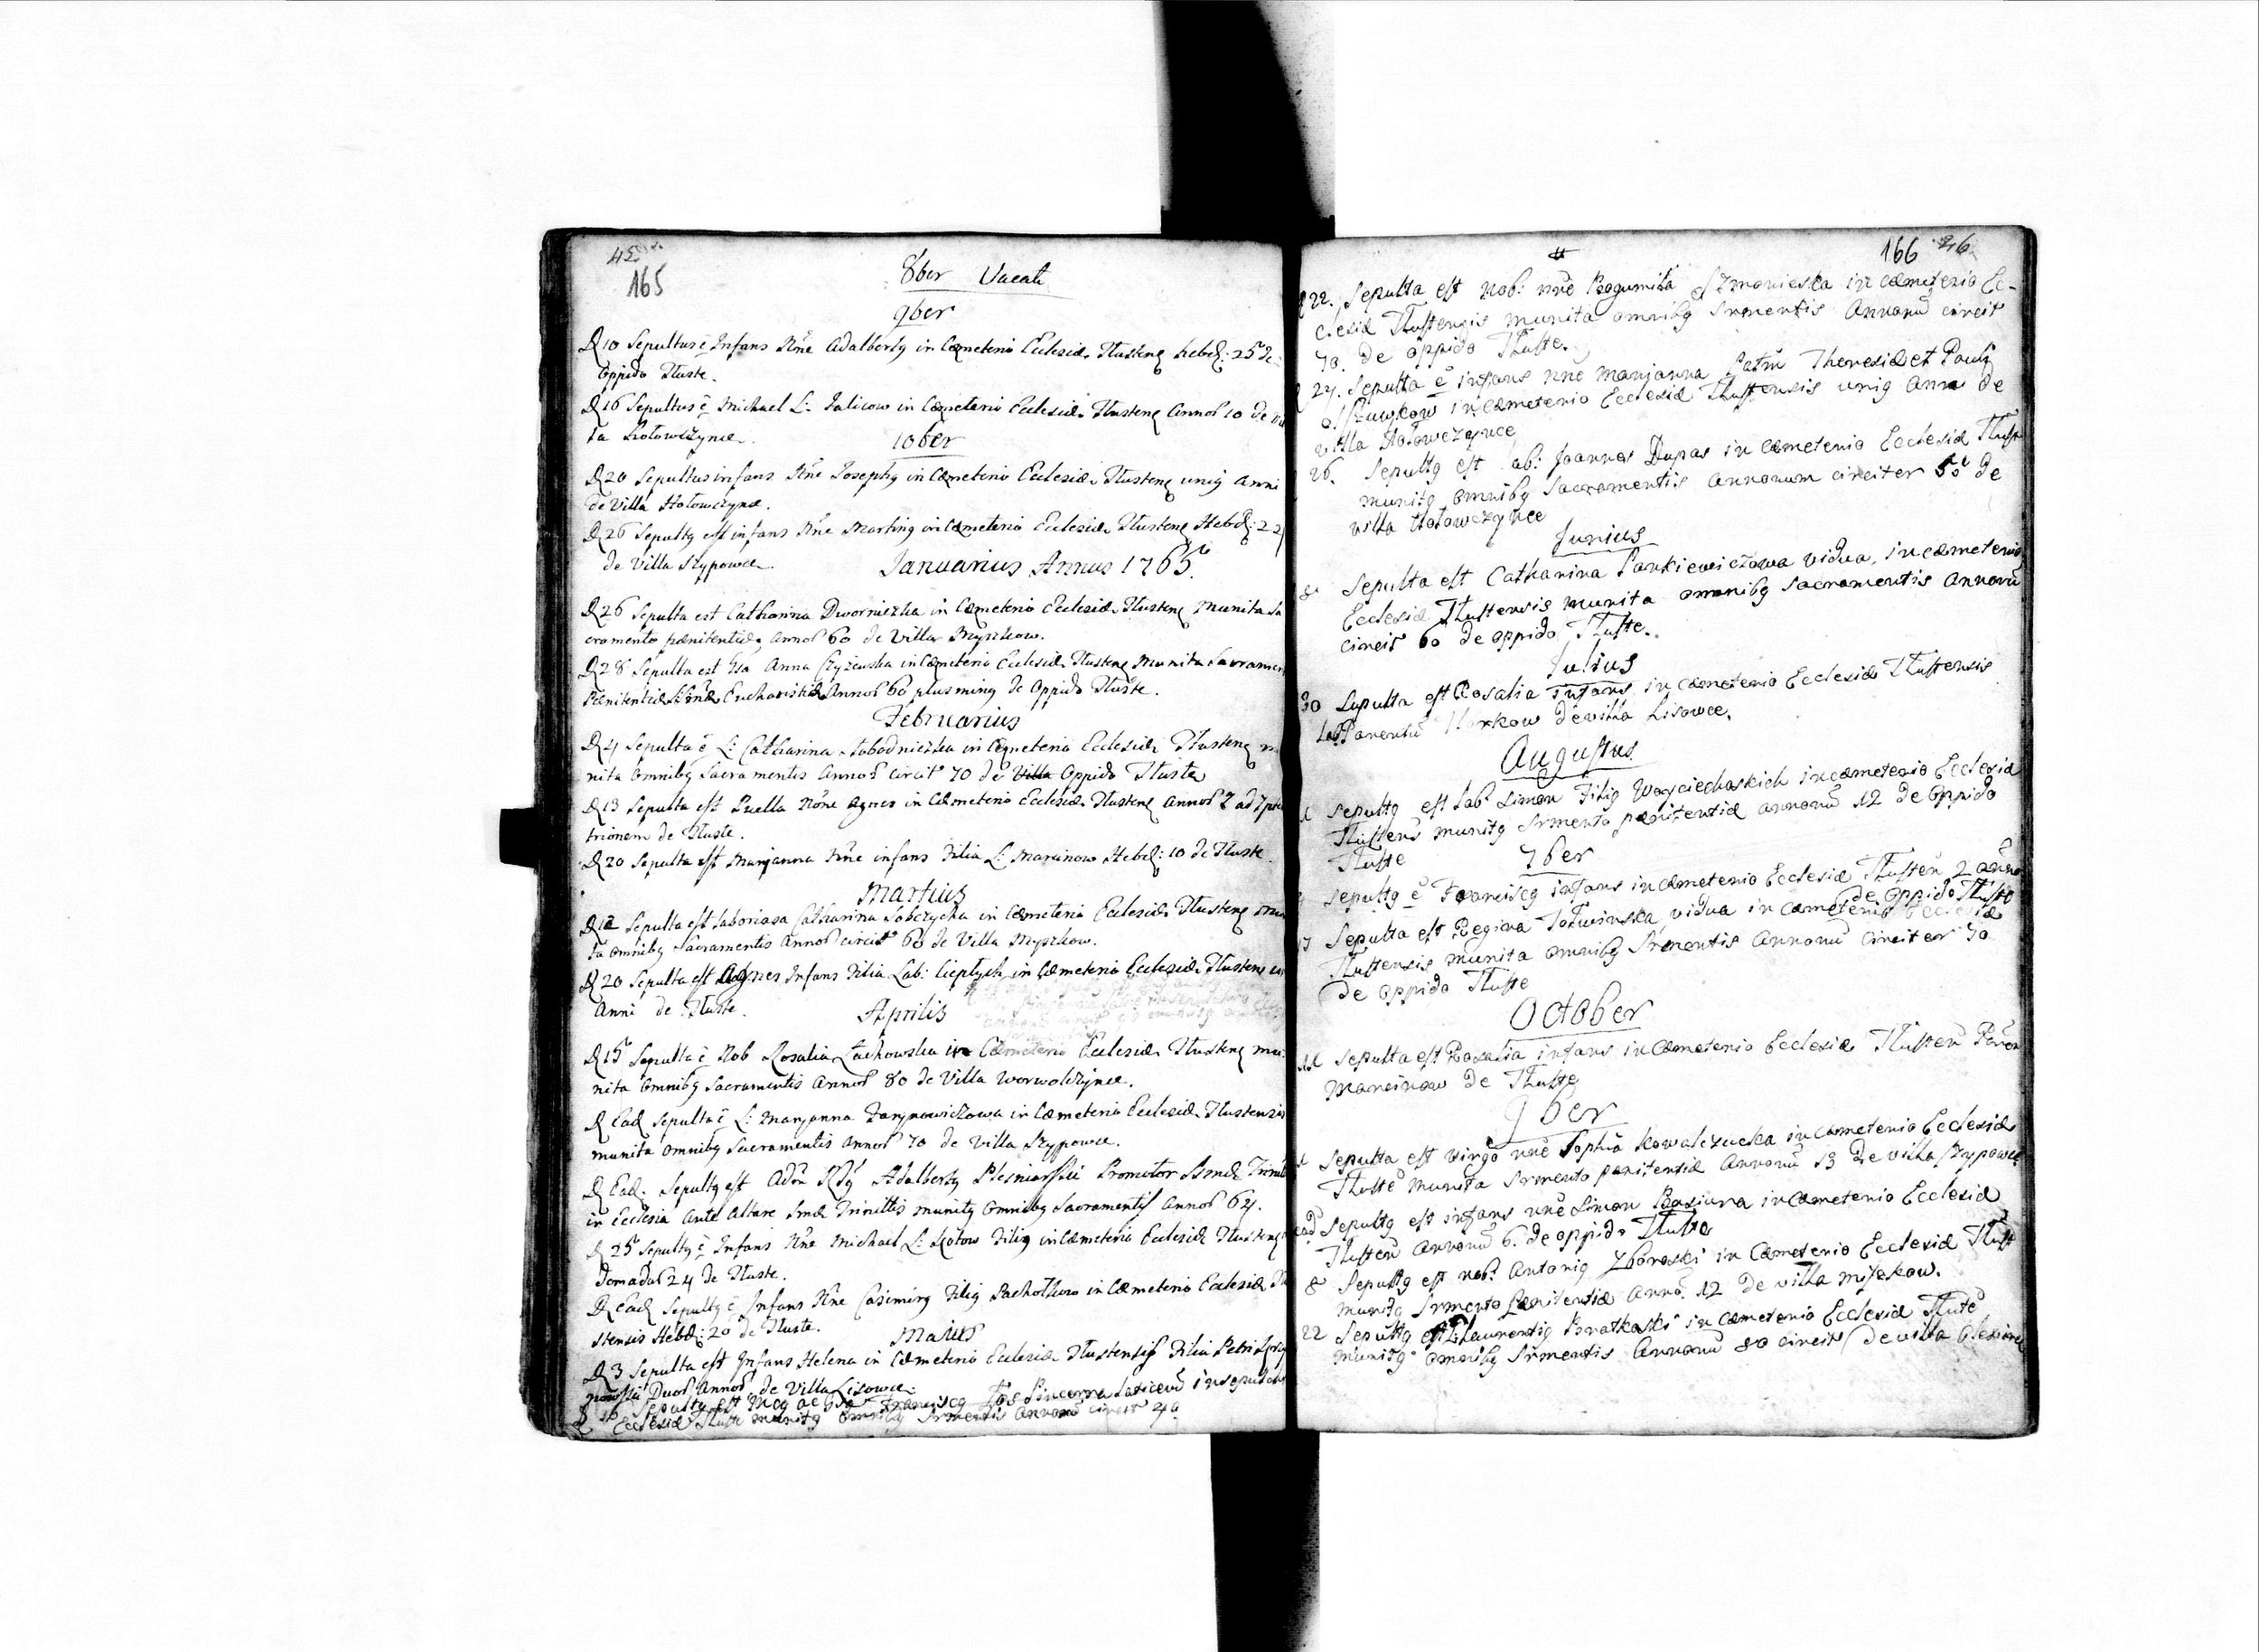 45
165
8ber Vacat
9ber
D 10 Sepultus ē Infans Nne Adalbertg in Cæmeterio Ecclesiæ Tlusteng hebd: 25 de
Oppido Tłuste.
D 16 Sepultus ē Michael L: in Cæmeterio Ecclesiæ Tlusteng Annor 10 de Vil
la Hołowczynce.
10ber
D 20 Sepultus infans Nne Josephg in Cæmeterio Ecclesiæ Tlusteng unig Anni
de Villa Hołowczynce.
D 26 Sepultg est infans Nne Marting in Cæmeterio Ecclesiæ Tlusteng Hebd: 22
de Villa Szypowce.
Januarius Annus 1765.
D 26 Sepulta est Catharina Dworniczka in Cæmeterio Ecclesiæ Tlusteng Munita Sa
cramento pænitentiæ, Annor 60 de Villa Myszkow.
D 28 Sepulta est Gsa Anna Czyżewska in Cæmeterio Ecclesiæ Tlusteng Munita Sacramen
Pænitentiæ Eucharistiæ Annor 60 plus ming de Oppido Tłuste.
Februarius
D 4 Sepulta ē L: Catharina Słobodniczka in Cæmeterio Ecclesiæ Tlusteng mu
nita Omnibg Sacramentis Annor circit 70 de Villa Oppido Tłuste
D 13 Sepulta est Puella Nõne Agnes in Cæmeterio Ecclesiæ Tlusteng Annor 2 ad 7pten
trionem de Tłuste.
D 20 Sepulta est Marjanna Nne infans Filia L: Marcinow Hebd: 10 de Tłuste.
Martius
D 12 Sepulta est laboriosa Catharina Sobczycha in Cæmeterio Ecclesiæ Tlusteng muni
ta omnibg Sacramentis Annor circit 60 de Villa Myszkow.
D 20 Sepulta est Agnes Infans Filia Lab: Cieptych in Cæmeterio Ecclesiæ Tlusteng un
Anni de Tłuste.
Aprilis
D 15 Sepulta ē Nob Rosalia Łachowska in Cæmeterio Ecclesiæ Tlusteng mu
nita Omnibg Sacramentis Annor 80 de Villa Worwolczynce.
D Ead Sepulta ē L: Maryanna Jarynowiczowa in Cæmeterio Ecclesiæ Tlustensis
munita Omnibg Sacramentis Annor 70 de Villa Szypowce.
D Ead. Sepultg est Adm Rdg Adalbertg Plesniarski Promotor Ssmæ Trinit
in Ecclesia Ante Altare Smæ Trinittis munitg Omnibg Sacramentis Annor 64.
D 25 Sepultg ē Infans Nne Michael L: Kotow Filig in Cæmeterio Ecclesiæ Tlusteng
domadar 24 de Tłuste.
D Ead Sepultg ē Infans Nne Casimirg Filig Pachołkow in Cæmeterio Ecclesiæ Tlu
stensis Hebd: 20 de Tłuste.
Maius
D 3 Sepulta est Infans Helena in Cæmeterio Ecclesiæ Tlustensis Filia Petri
Duor Annor de Villa Lisowce.
D 18 Sepultg est Mcg ac Gsg Franciscg Pincerna in sepulchr
Ecclesiæ Tlust munitg omnibg Srmentis Annorū circit 40
166 46
22. Sepulta est Nob: nne Bogumiła Szmonieska in cæmeterio Ec-
clesiæ Tlustensis munita omnibg Srmentis Annorū circit
70. de oppido Tłuste.
24. Sepulta ē infans nne Marjanna Patrū Theresiæ et Pauli
in cæmeterio Ecclesiæ Tlustensis unig Anni de
villa Hołowczynce
26. Sepultg est Lab: Joannes Dupas in cæmeterio Ecclesiæ Tlust
munitg omnibg Sacramentis Annorum circiter 50 de
villa Hołowczynce
Junius
8 Sepulta est Catharina Pankiewiczowa vidua, in cæmeterio
Ecclesiæ Tlustensis munita omnibg Sacramentis Annorū
circit 60 de oppido Tłuste.
Julius
30 Sepulta est Rosalia infans in cæmeterio Ecclesiæ Tlustensis
Lab Parentū de villa Lisowce.
Augustus
Sepultg est Lab: Simon Filig Woyciechoskich in cæmeterio Ecclesiæ
Tlustens munitg Srmento pænitentiæ annorū 12 de Oppido
Tłuste
7ber
Sepultg ē Franciscg infans in cæmeterio Ecclesiæ Tlusten 2 anno
de oppido Tłuste
17 Sepulta est Regina Tołwinska vidua in cæmeterio Ecclesiæ
Tlustensis munita omnibg Srmentis Annorū circiter 70
de oppido Tłuste
October
11 Sepulta est Rosalia infans in cæmeterio Ecclesiæ Tlusten Paren
Marcinow de Tłuste
9ber
1 Sepulta est virgo nne Sophia Kowalczucka in cæmeterio Ecclesiæ
Tluste munita Srmento pænitentiæ Annorū 13 de villa Szypowce
ead Sepultg est infans nne Simon Basiura in cæmeterio Ecclesiæ
Tlusten Annorū 6. de oppido Tłuste
8 Sepultg est nob: Antonig Zboroski in Cæmeterio Ecclesiæ Tlust
munitg Srmento Pænitentiæ Anno. 12 de villa Miskow.
22 Sepultg est Laurentig Bratkoski in cæmeterio Ecclesiæ Tlute
munitg omnibg Srmentis Annorū 80 circit de villa